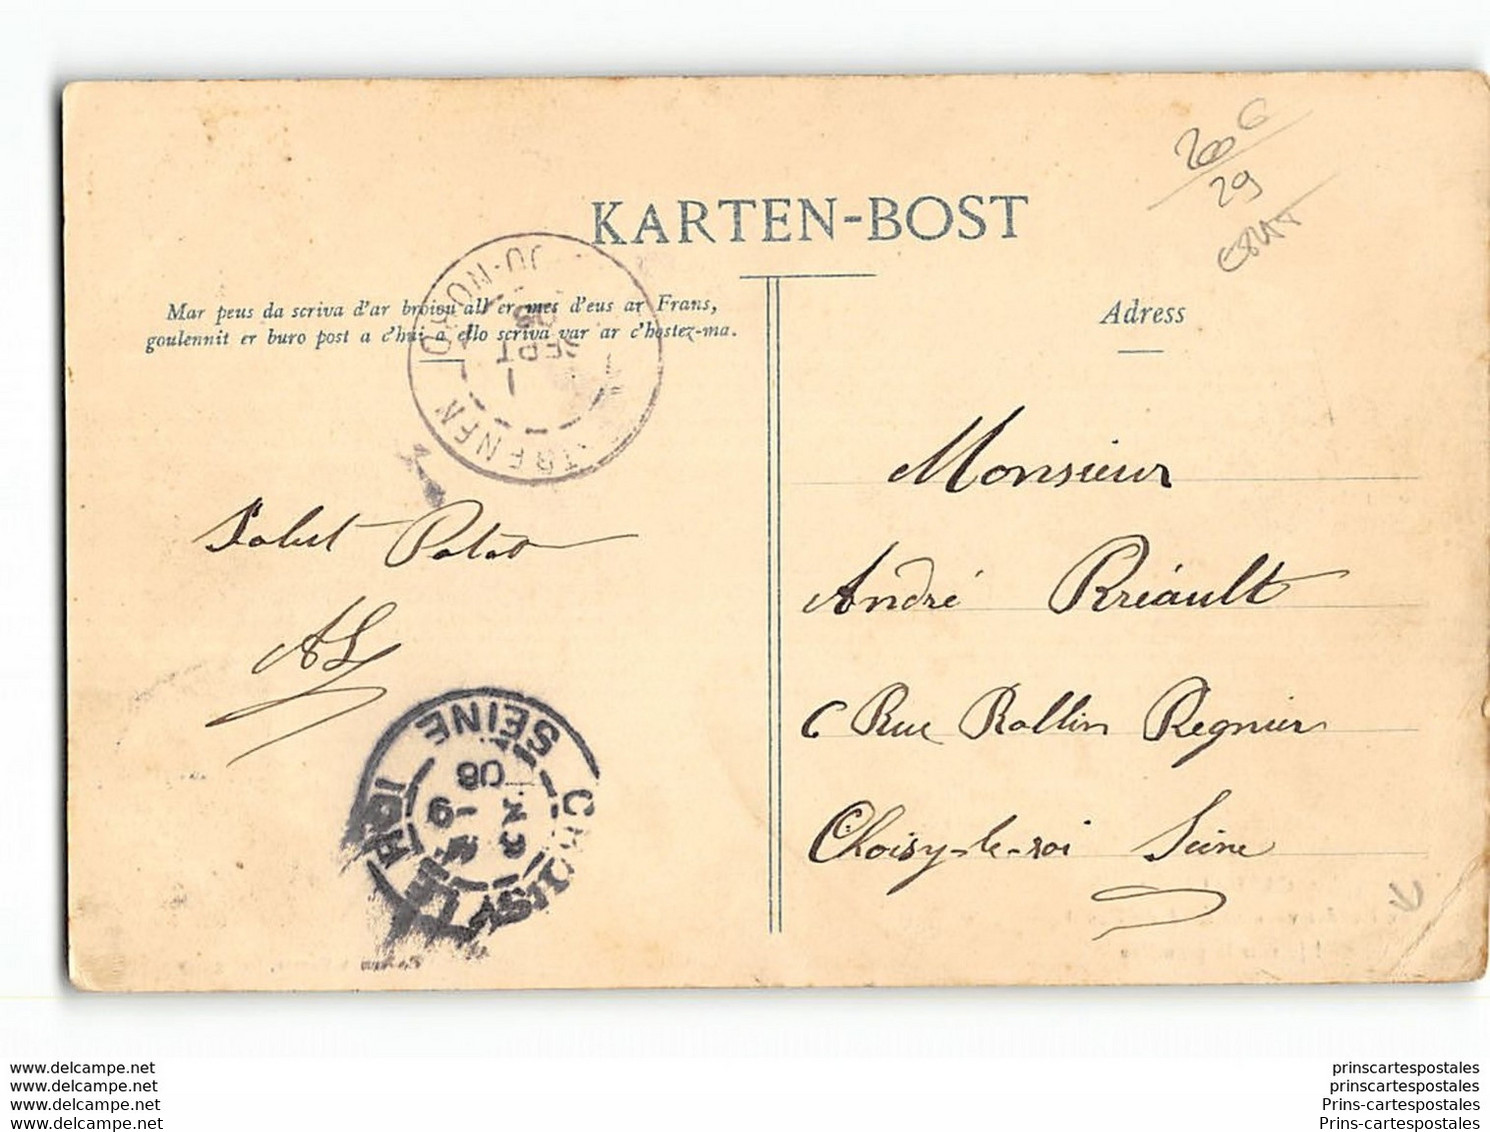 200 €
29
KARTEN-BOST
Mar peus da scriva d'ar broiou all er mes d'eus ar Frans,
goulennit er buro post a c'hui a ello scriva var ar c'hostez-ma.
Adress
SEPT
08
Salut Potot
AL
Monsieur
André Rriault
6 Rue Rollin Regnier
Choisy-le-roi Seine
CHOISY LE ROI
SEINE
08
www.delcampe.net
www.delcampe.net
www.delcampe.net
www.delcampe.net
prinscartespostales
prinscartespostales
Prins-cartespostales
Prins-cartespostales